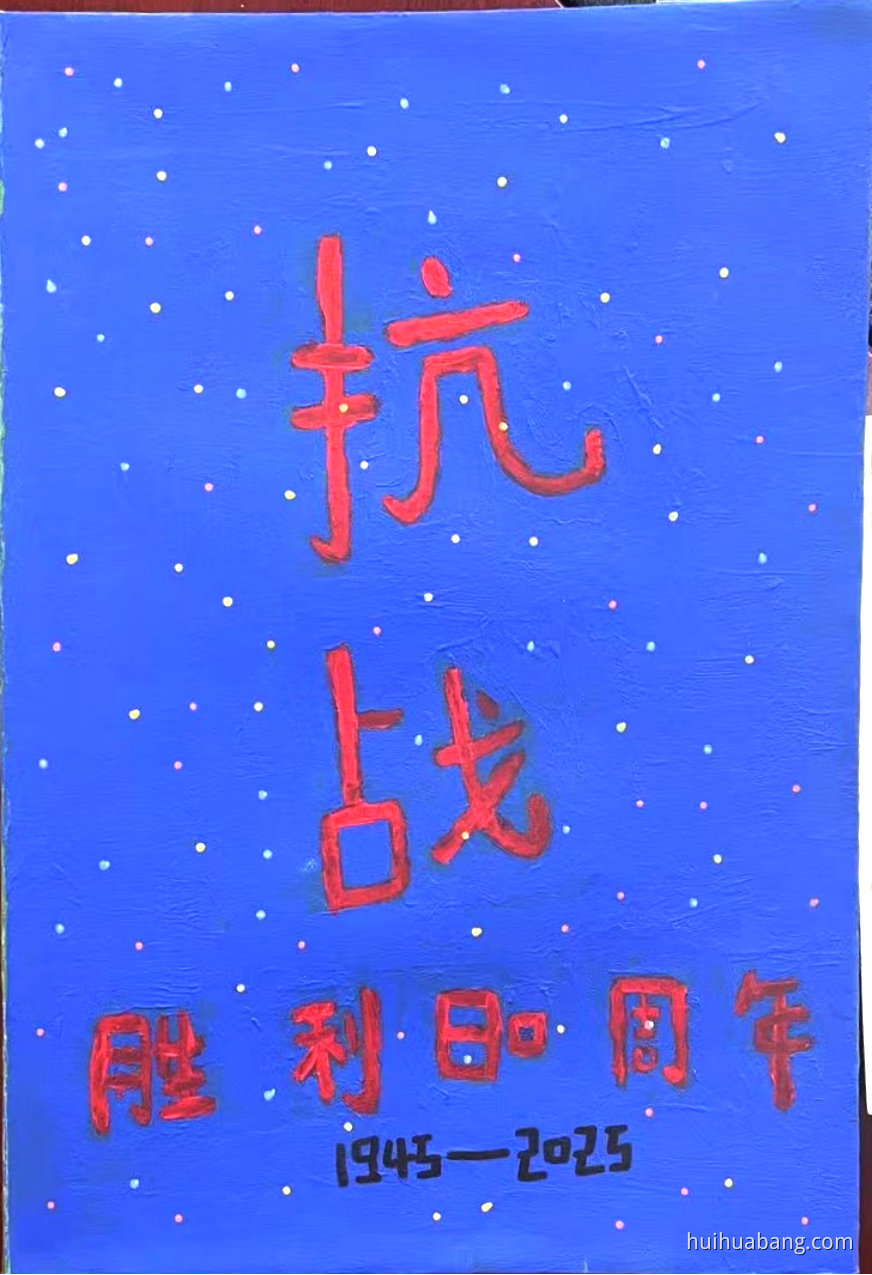 抗
战
胜利80周年
1945—2025
huihuabang.com